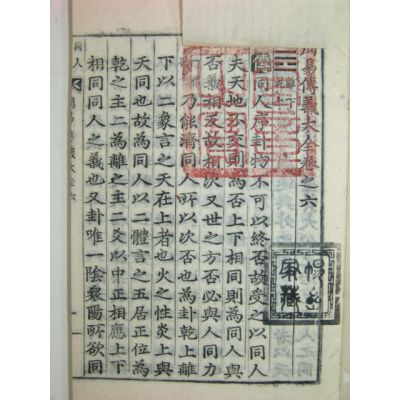 周易傳義大全卷之六
離下
乾上
傳同人序卦物不可以終否故受之以同人
夫天地不交則為否上下相同則為同人與
否義相反故相次又世之方否必與人同力
乃能濟同人所以次否也為卦乾上離
下以二象言之天在上者也火之性炎上與
天同也故為同人以二體言之五居正位為
乾之主二為離之主二爻以中正相應上下
相同同人之義也又卦唯一陰衆陽所欲同
同人
家藏